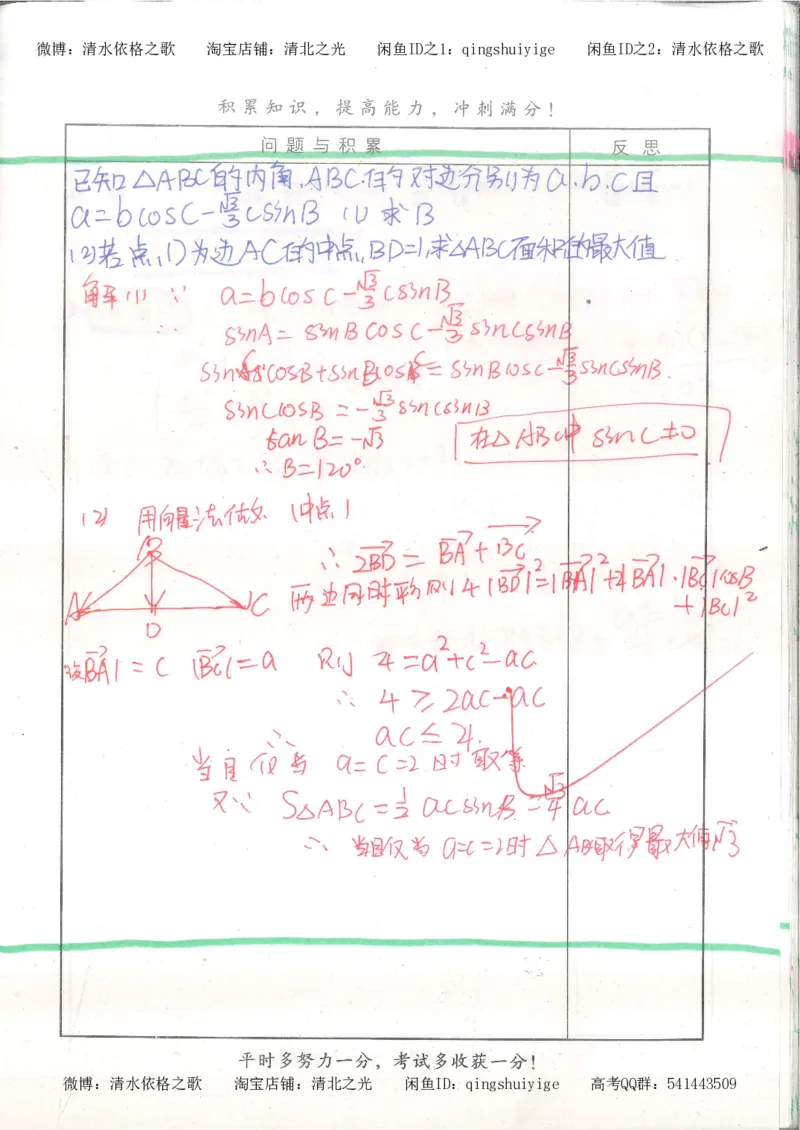 微博：清水依格之歌 淘宝店铺：清北之光 闲鱼ID之1：qingshuiyige 闲鱼ID之2：清水依格之歌
积累知识，提高能力，冲刺满分！
问题与积累 反思
已知△ABC的内角,ABC.的对边分别为a.b.c且
a=bcosC-√3/3csinB (1)求B
(2)若点D为边AC的中点,BD=1,求△ABC面积的最大值
解(1) ∵ a=bcosC-√3/3csinB
∴ sinA=sinBcosC-√3/3sinCsinB
sinCcosB+sinBcosC=sinBcosC-√3/3sinCsinB.
sinCcosB=-√3/3sinCsinB
tanB=-√3 在△ABC中 sinC≠0
∴B=120°
(2) 用向量法做 (中点)
B
∴ 2BD=BA+BC
A C 两边同时平方则4|BD|²=|BA|²+2|BA|·|BC|cosB
+|BC|²
D
设|BA|=c |BC|=a 则 4=a²+c²-ac
∴ 4≥2ac-ac
∴ ac≤4.
当且仅当 a=c=2时取等
又∵ S△ABC=1/2acsinB=√3/4ac
∴ 当且仅当a=c=2时△ABC取得最大值√3
平时多努力一分，考试多收获一分！
微博：清水依格之歌 淘宝店铺：清北之光 闲鱼ID：qingshuiyige 高考QQ群：541443509